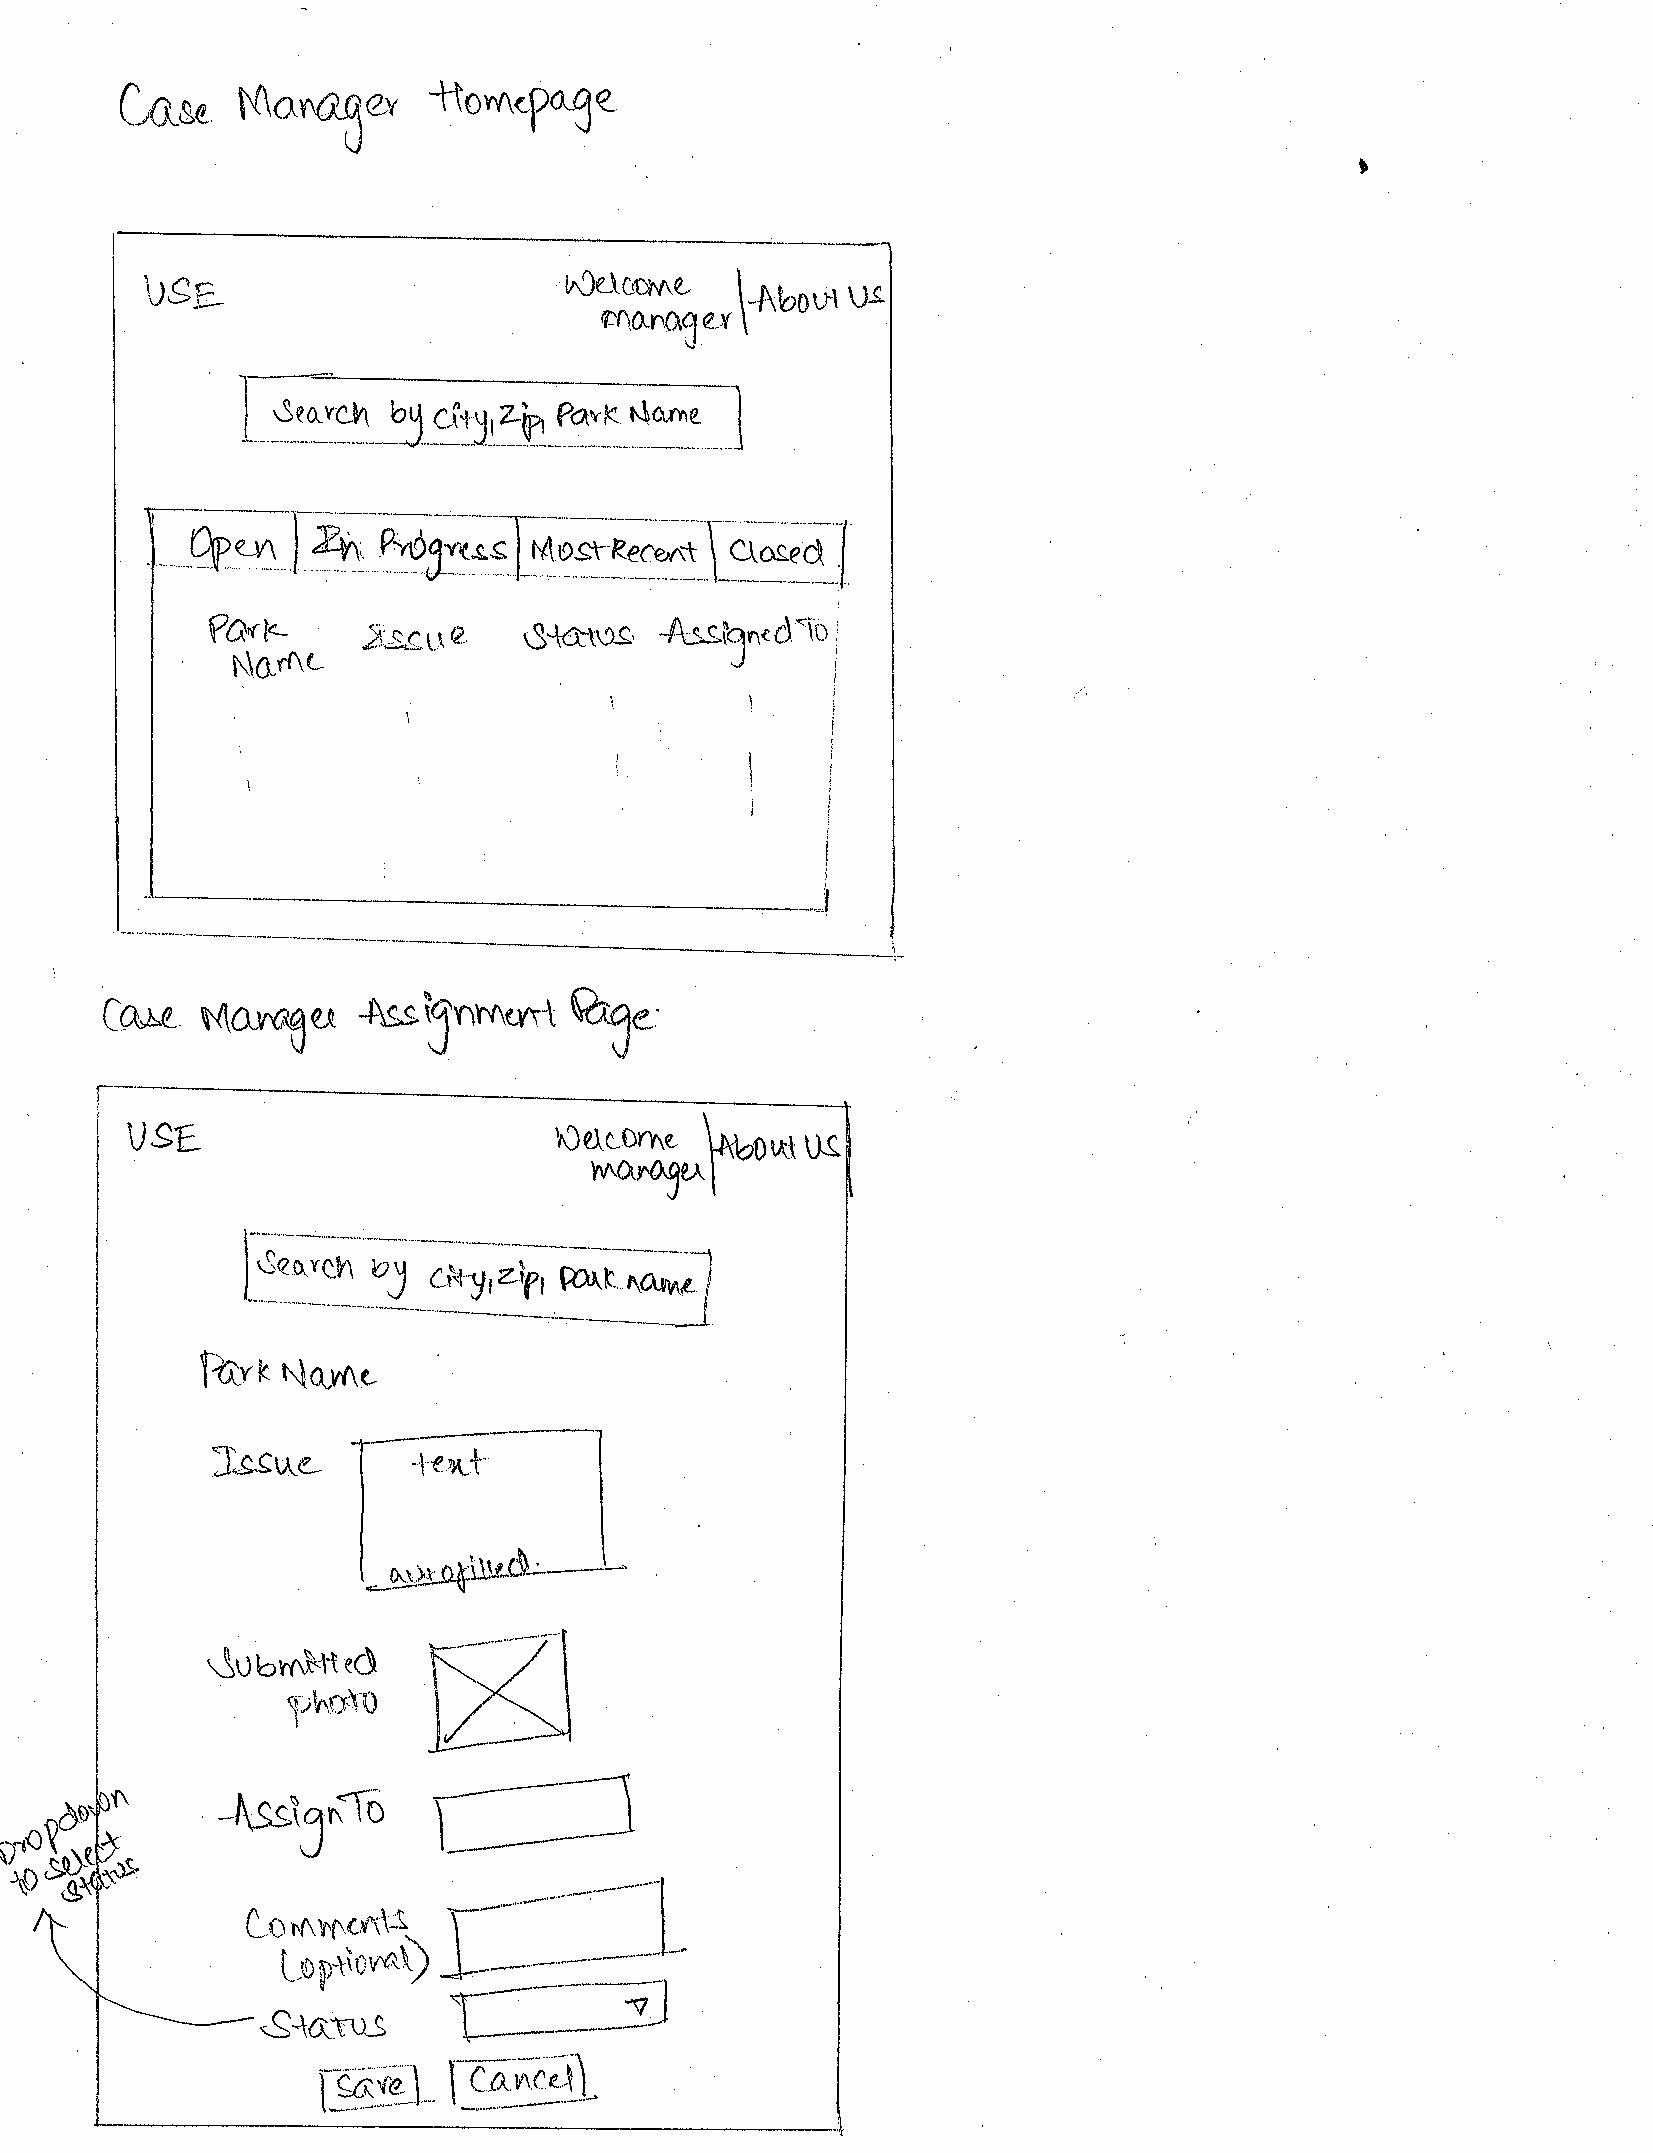 Case Manager Homepage
USE
Welcome
manager
About Us
Search by City, Zip, Park Name
Open
In Progress
Most Recent
Closed
Park
Name
Issue
Status
Assigned To
Case Manager Assignment Page
USE
Welcome
manager
About Us
Search by City, Zip, Park name
Park Name
Issue
text
autofilled.
Submitted
photo
Assign To
Dropdown
to select
status
Comments
(optional)
Status
Save
Cancel